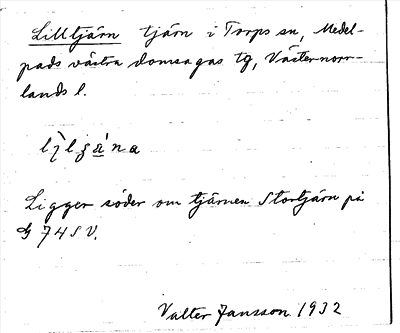 Lilltjärn tjärn i Torps sn, Medel-
pads västra domsagas tg, Västernorr-
lands l.
Ligger söder om tjärnen Stortjärn på
G 74 SV.
Valter Jansson 1932